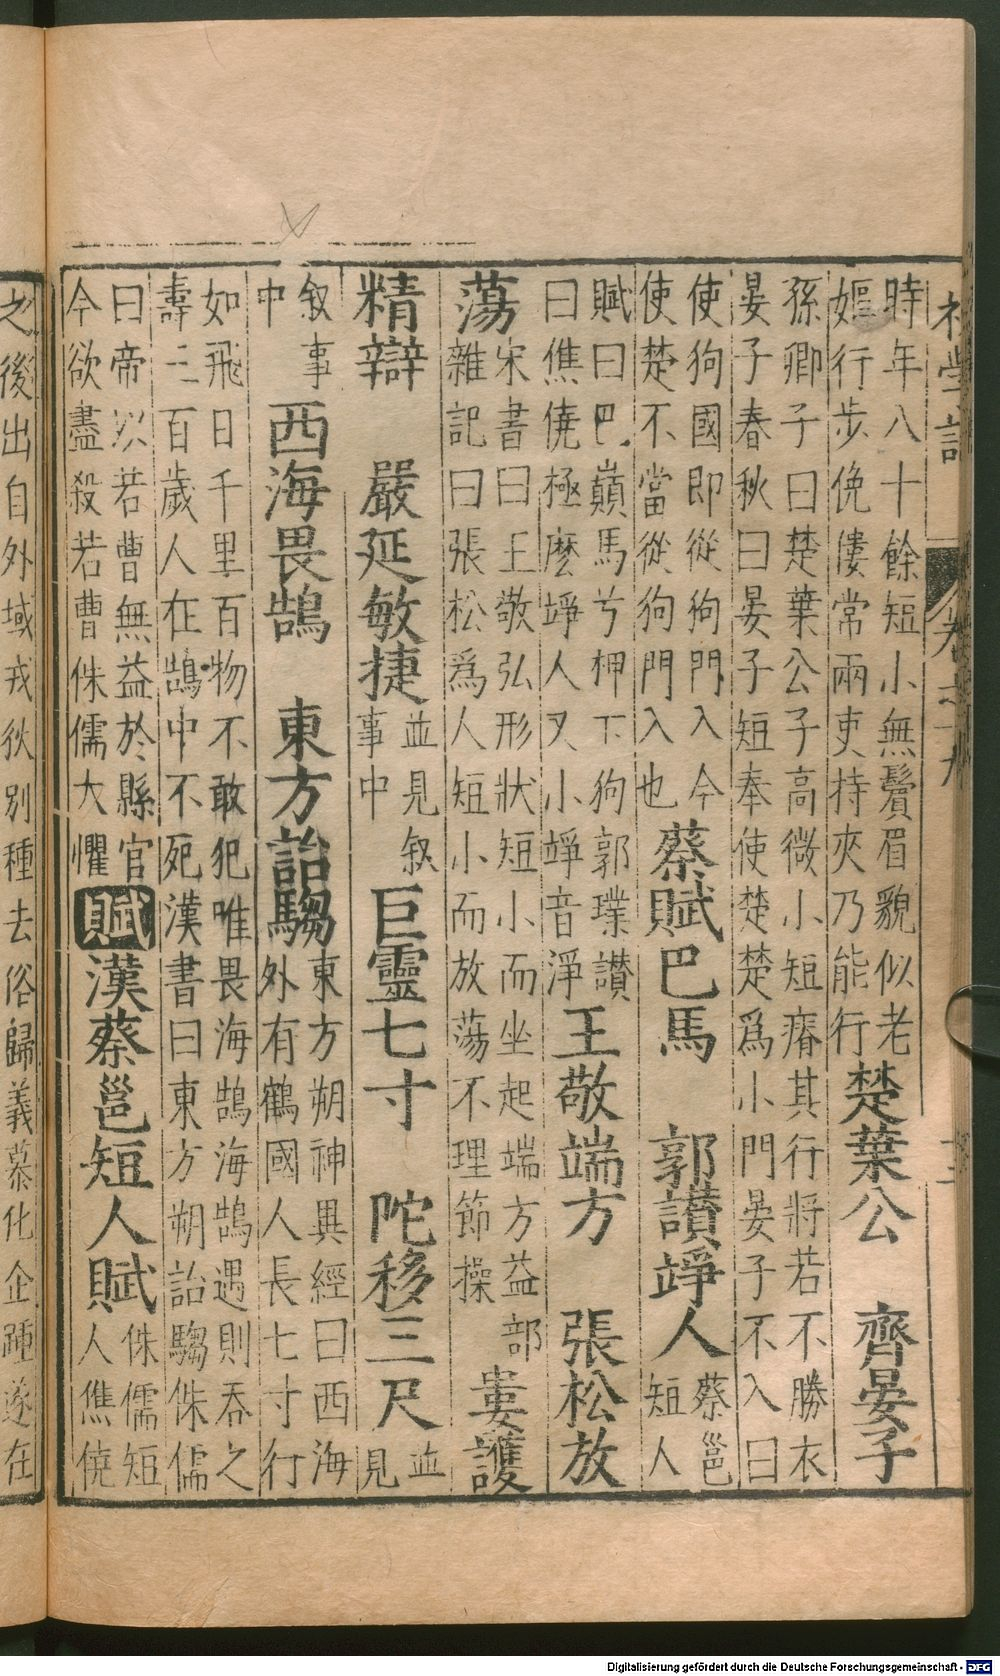 初學記 卷之十九
時年八十餘短小無鬢眉貌似老
嫗行步俛僂常兩吏持夾乃能行
楚葉公 齊晏子
孫卿子曰楚葉公子高微小短瘠其行將若不勝衣
晏子春秋曰晏子短奉使楚楚爲小門晏子不入曰
使狗國即從狗門入今
使楚不當從狗門入也
蔡賦巴馬 郭讃竫人
蔡邕
短人
賦曰巴巔馬兮柙下狗郭璞讃
曰僬僥極麽竫人又小竫音淨
王敬端方 張松放
蕩
宋書曰王敬弘形狀短小而坐起端方益部
雜記曰張松爲人短小而放蕩不理節操
婁護
精辯 嚴延敏捷
並見叙
事中
巨靈七寸 陀移三尺
並
見
叙事
中
西海畏鵠 東方詒騶
東方朔神異經曰西海
外有鶴國人長七寸行
如飛日千里百物不敢犯唯畏海鵠海鵠遇則吞之
壽三百歲人在鵠中不死漢書曰東方朔詒騶侏儒
曰帝以若曹無益於縣官
今欲盡殺若曹侏儒大懼
賦 漢蔡邕短人賦
侏儒短
人僬僥
之後出自外域戎狄別種去俗歸義慕化企踵遂在
Digitalisierung gefördert durch die Deutsche Forschungsgemeinschaft - DFG